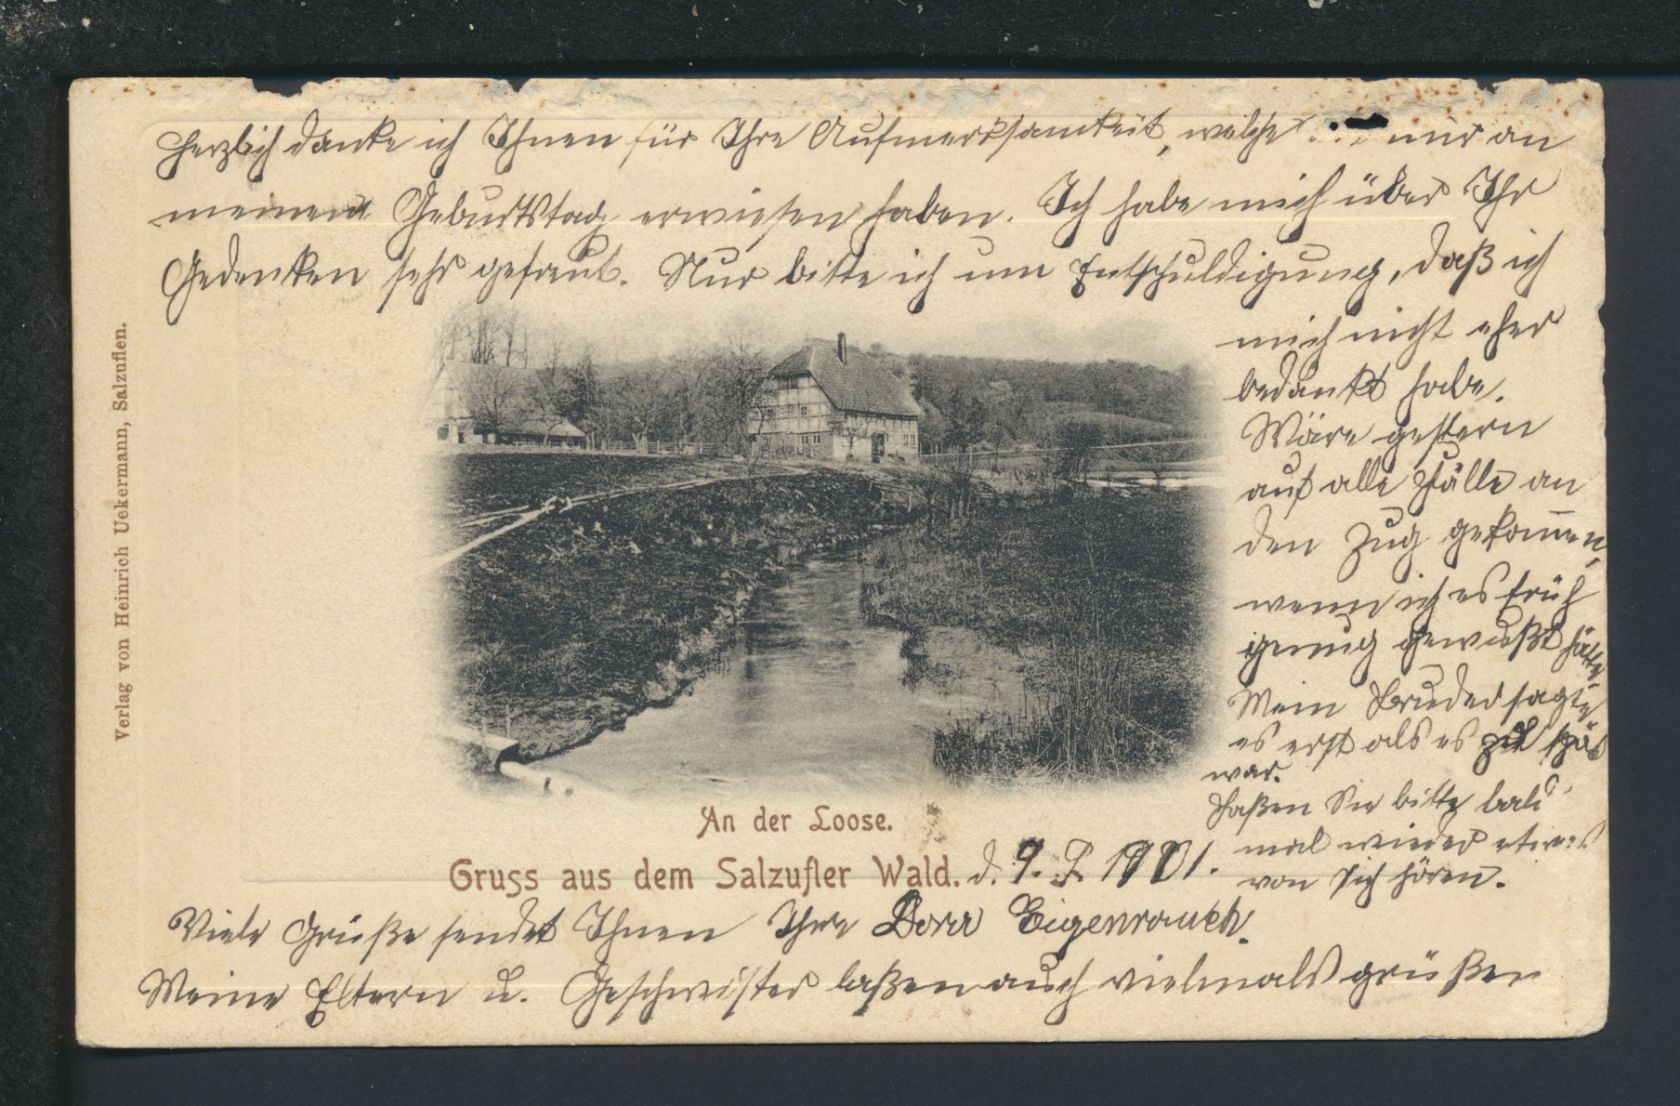 Herzlich danke ich Ihnen für Ihre Aufmerksamkeit, welche mir an
meinem Geburtstag erwiesen haben. Ich habe mich über Ihr
Gedenken sehr gefreut. Nur bitte ich um Entschuldigung, daß ich
mich nicht eher
bedankt habe.
Wäre gestern
auf alle Fälle an
den Zug gekommen,
wenn ich es früh
genug gewußt hätte.
Mein Bruder sagte
es erst als es zu spät
war.
Laßen Sie bitte bald
mal wieder etwas
von sich hören.
An der Loose.
Gruss aus dem Salzufler Wald. d. 9. 1901.
Viele Grüße sendet Ihnen Ihre Eigenrauch.
Meine Eltern u. Geschwister laßen auch vielmals grüßen
Verlag von Heinrich Uekermann, Salzuflen.